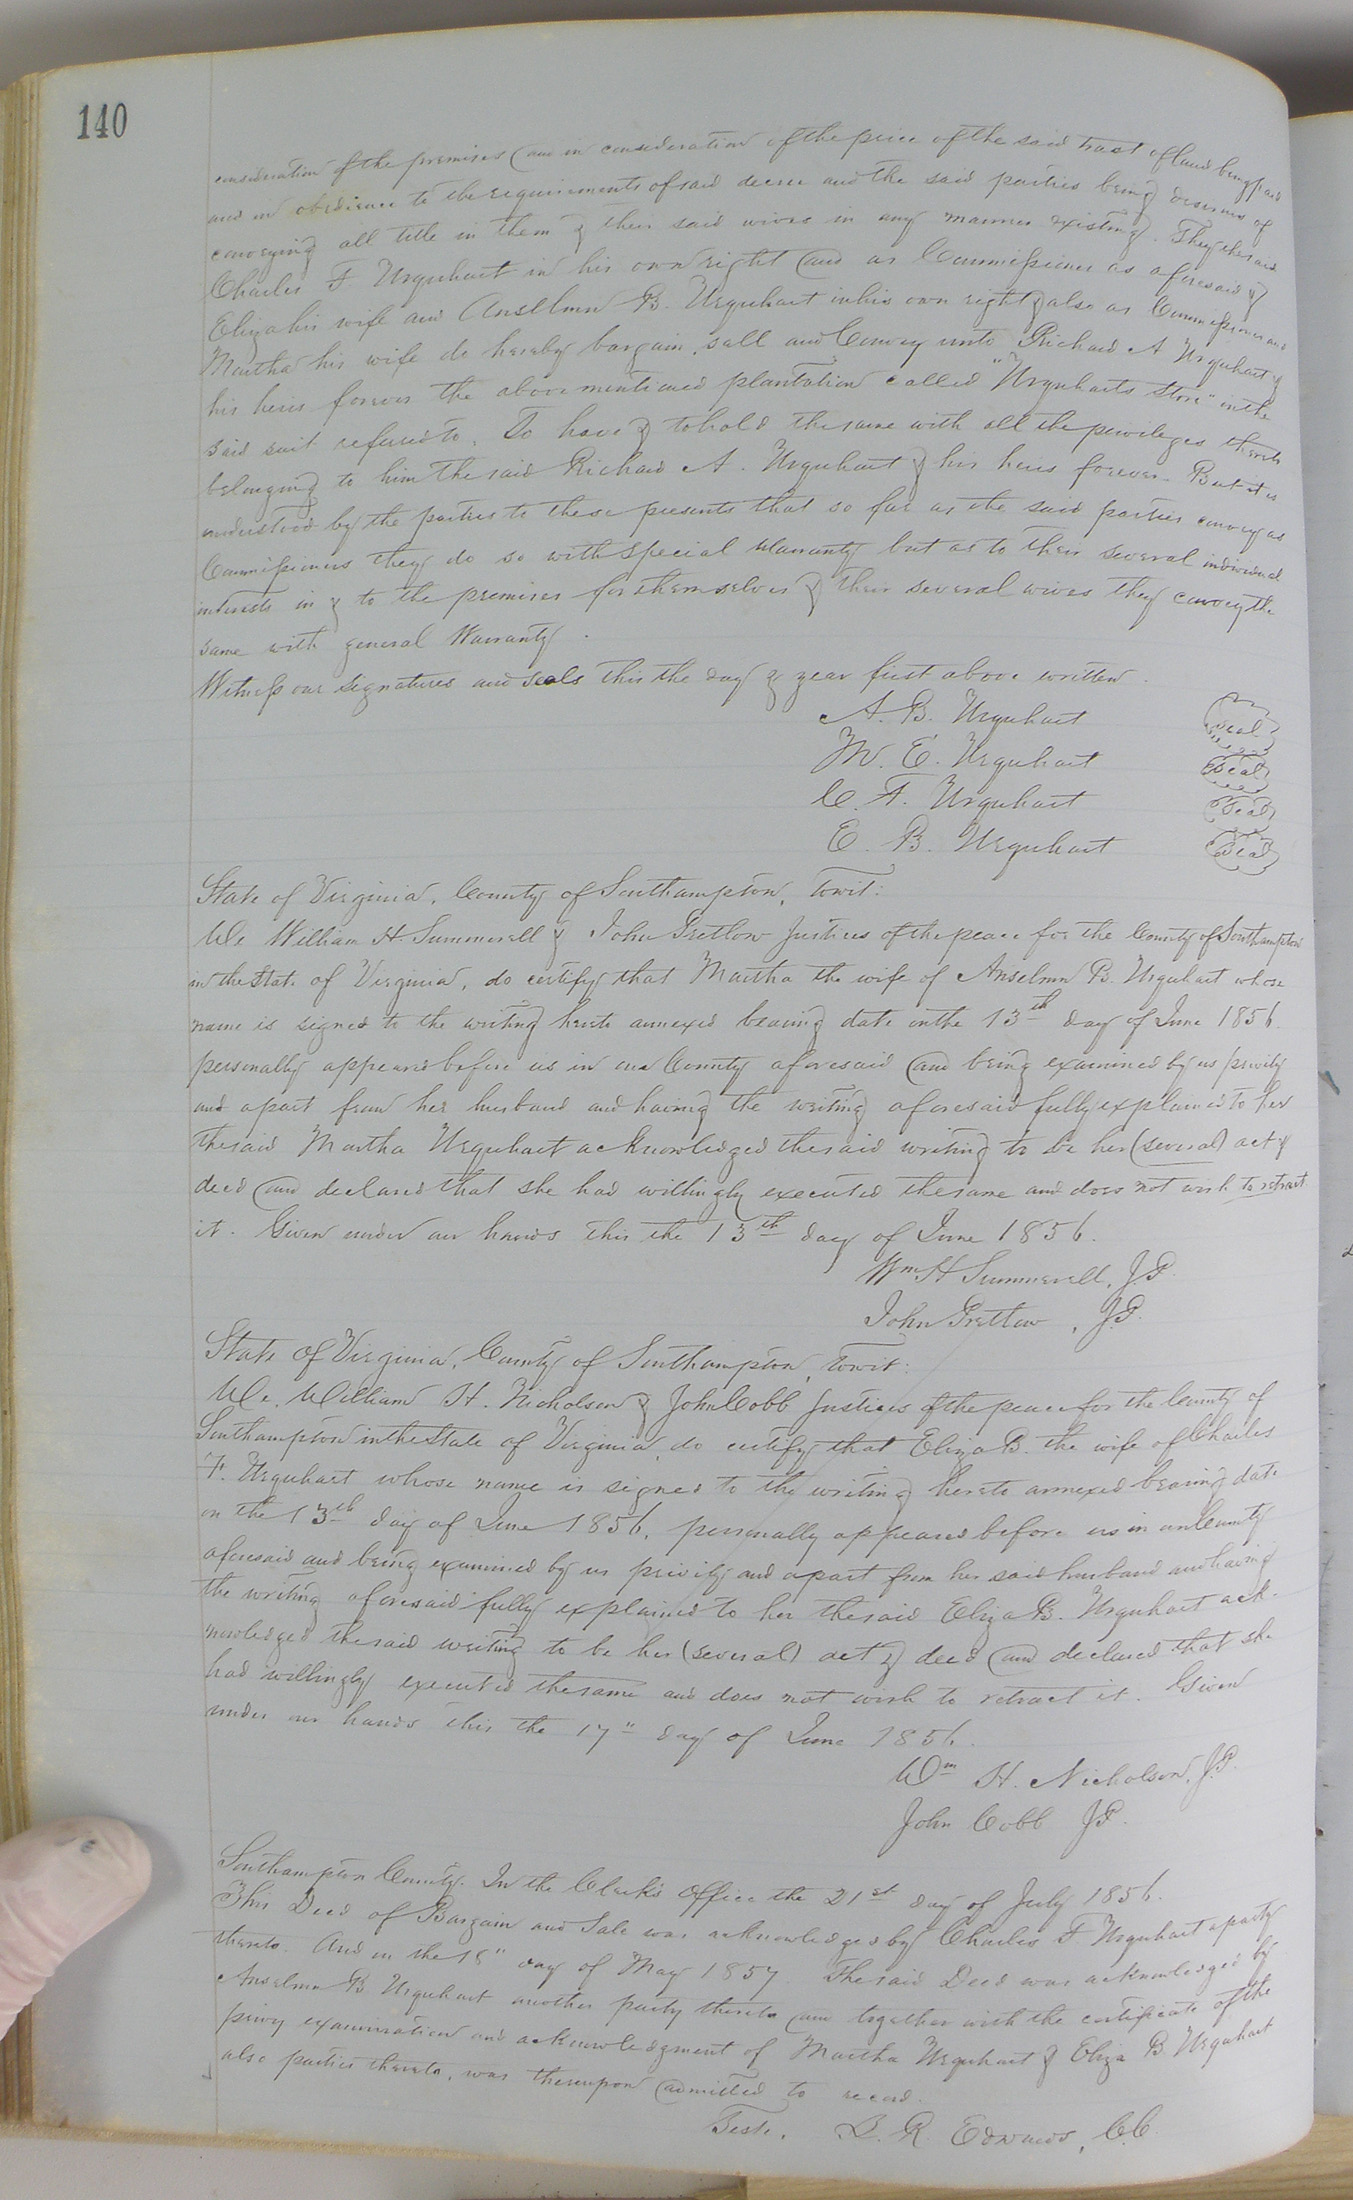 140
consideration of the premises and in consideration of the price of the said tract of land being paid
and in obedience to the requirements of said decree and the said parties being desirous of
conveying all title in them & their said wives in any manner existing. They the said
Charles F. Urquhart in his own right and as Commissioner as aforesaid &
Eliza his wife and Anselmn B. Urquhart in his own right & also as Commissioner and
Martha his wife do hereby bargain, sell and Convey unto Richard A Urquhart &
his heirs forever the above mentioned plantation called "Urquharts Store" in the
said suit refered to. To have & to hold the same with all the privileges thereto
belonging to him the said Richard A. Urquhart & his heirs forever. But it is
understood by the parties to these presents that so far as the said parties convey as
Commissioners they do so with special Warranty but as to their several individual
interests in & to the premises for themselves & their several wives they convey the
same with general Warranty.
Witness our signatures and seals this the day & year first above written.
A. B. Urquhart Seal
M. E. Urquhart Seal
C. F. Urquhart Seal
E. B. Urquhart Seal
State of Virginia, County of Southampton, towit:
We William H. Summerell & John Pretlow Justices of the peace for the County of Southampton
in the State of Virginia, do certify that Martha the wife of Anselmn B. Urquhart whose
name is signed to the writing hereto annexed bearing date on the 13th day of June 1856.
personally appeared before us in our County aforesaid and being examined by us privily
and apart from her husband and having the writing aforesaid fully explained to her
the said Martha Urquhart acknowledged the said writing to be her (several) act &
deed and declared that she had willingly executed the same and does not wish to retract
it. Given under our hands this the 13th day of June 1856.
Wm H Summerell, J.P.
John Pretlow, J.P.
State of Virginia, County of Southampton, towit:
We, William H. Nicholson & John Cobb Justices of the peace for the County of
Southampton in the State of Virginia, do certify that Eliza B. the wife of Charles
F. Urquhart whose name is signed to the writing hereto annexed bearing date
on the 13th day of June 1856, personally appeared before us in our County
aforesaid and being examined by us privily and apart from her said husband and having
the writing aforesaid fully explained to her the said Eliza B. Urquhart ack-
nowledged the said writing to be her (several) act & deed and declared that she
had willingly executed the same and does not wish to retract it. Given
under our hands this the 17" day of June 1856.
Wm H. Nicholson, J.P.
John Cobb JP.
Southampton County. In the Clerk's Office the 21st day of July 1856.
This Deed of Bargain and Sale was acknowledged by Charles F Urquhart a party
thereto. And on the 18" day of May 1857. The said Deed was acknowledged by
Anselmn B Urquhart another party thereto and together with the certificate of the
privy examination and acknowledgment of Martha Urquhart & Eliza B. Urquhart
also parties thereto, was thereupon admitted to record.
Teste. L. R. Edwards, C.C.